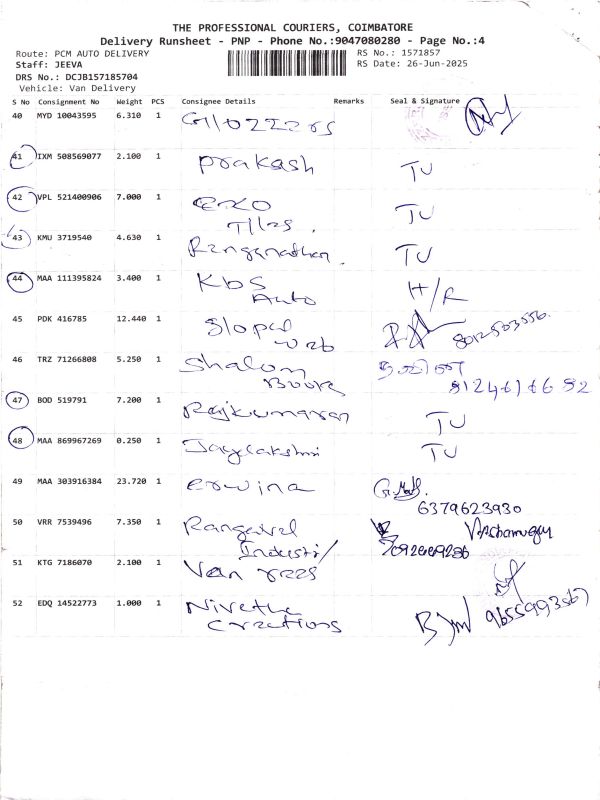 THE PROFESSIONAL COURIERS, COIMBATORE
Delivery Runsheet - PNP - Phone No.:9047080280 - Page No.:4
Route: PCM AUTO DELIVERY RS No.: 1571857
Staff: JEEVA RS Date: 26-Jun-2025
DRS No.: DCJB157185704
Vehicle: Van Delivery
S No Consignment No Weight PCS Consignee Details Remarks Seal & Signature
40 MYD 10043595 6.310 1
41 IXM 508569077 2.100 1 prakash TU
42 VPL 521400906 7.000 1 TU
Tiles.
43 KMU 3719540 4.630 1 Renganathan. TU
44 MAA 111395824 3.400 1 KbS H/R
Auto
45 PDK 416785 12.440 1
46 TRZ 71266808 5.250 1 Shalom
8124616682
47 BOD 519791 7.200 1 Rajkumaran TU
48 MAA 869967269 0.250 1 Jayalakshmi TU
49 MAA 303916384 23.720 1 erwina
6379623930
50 VRR 7539496 7.350 1 Rangavel
51 KTG 7186070 2.100 1 Van
52 EDQ 14522773 1.000 1 Nivetha 9655993567
Creations